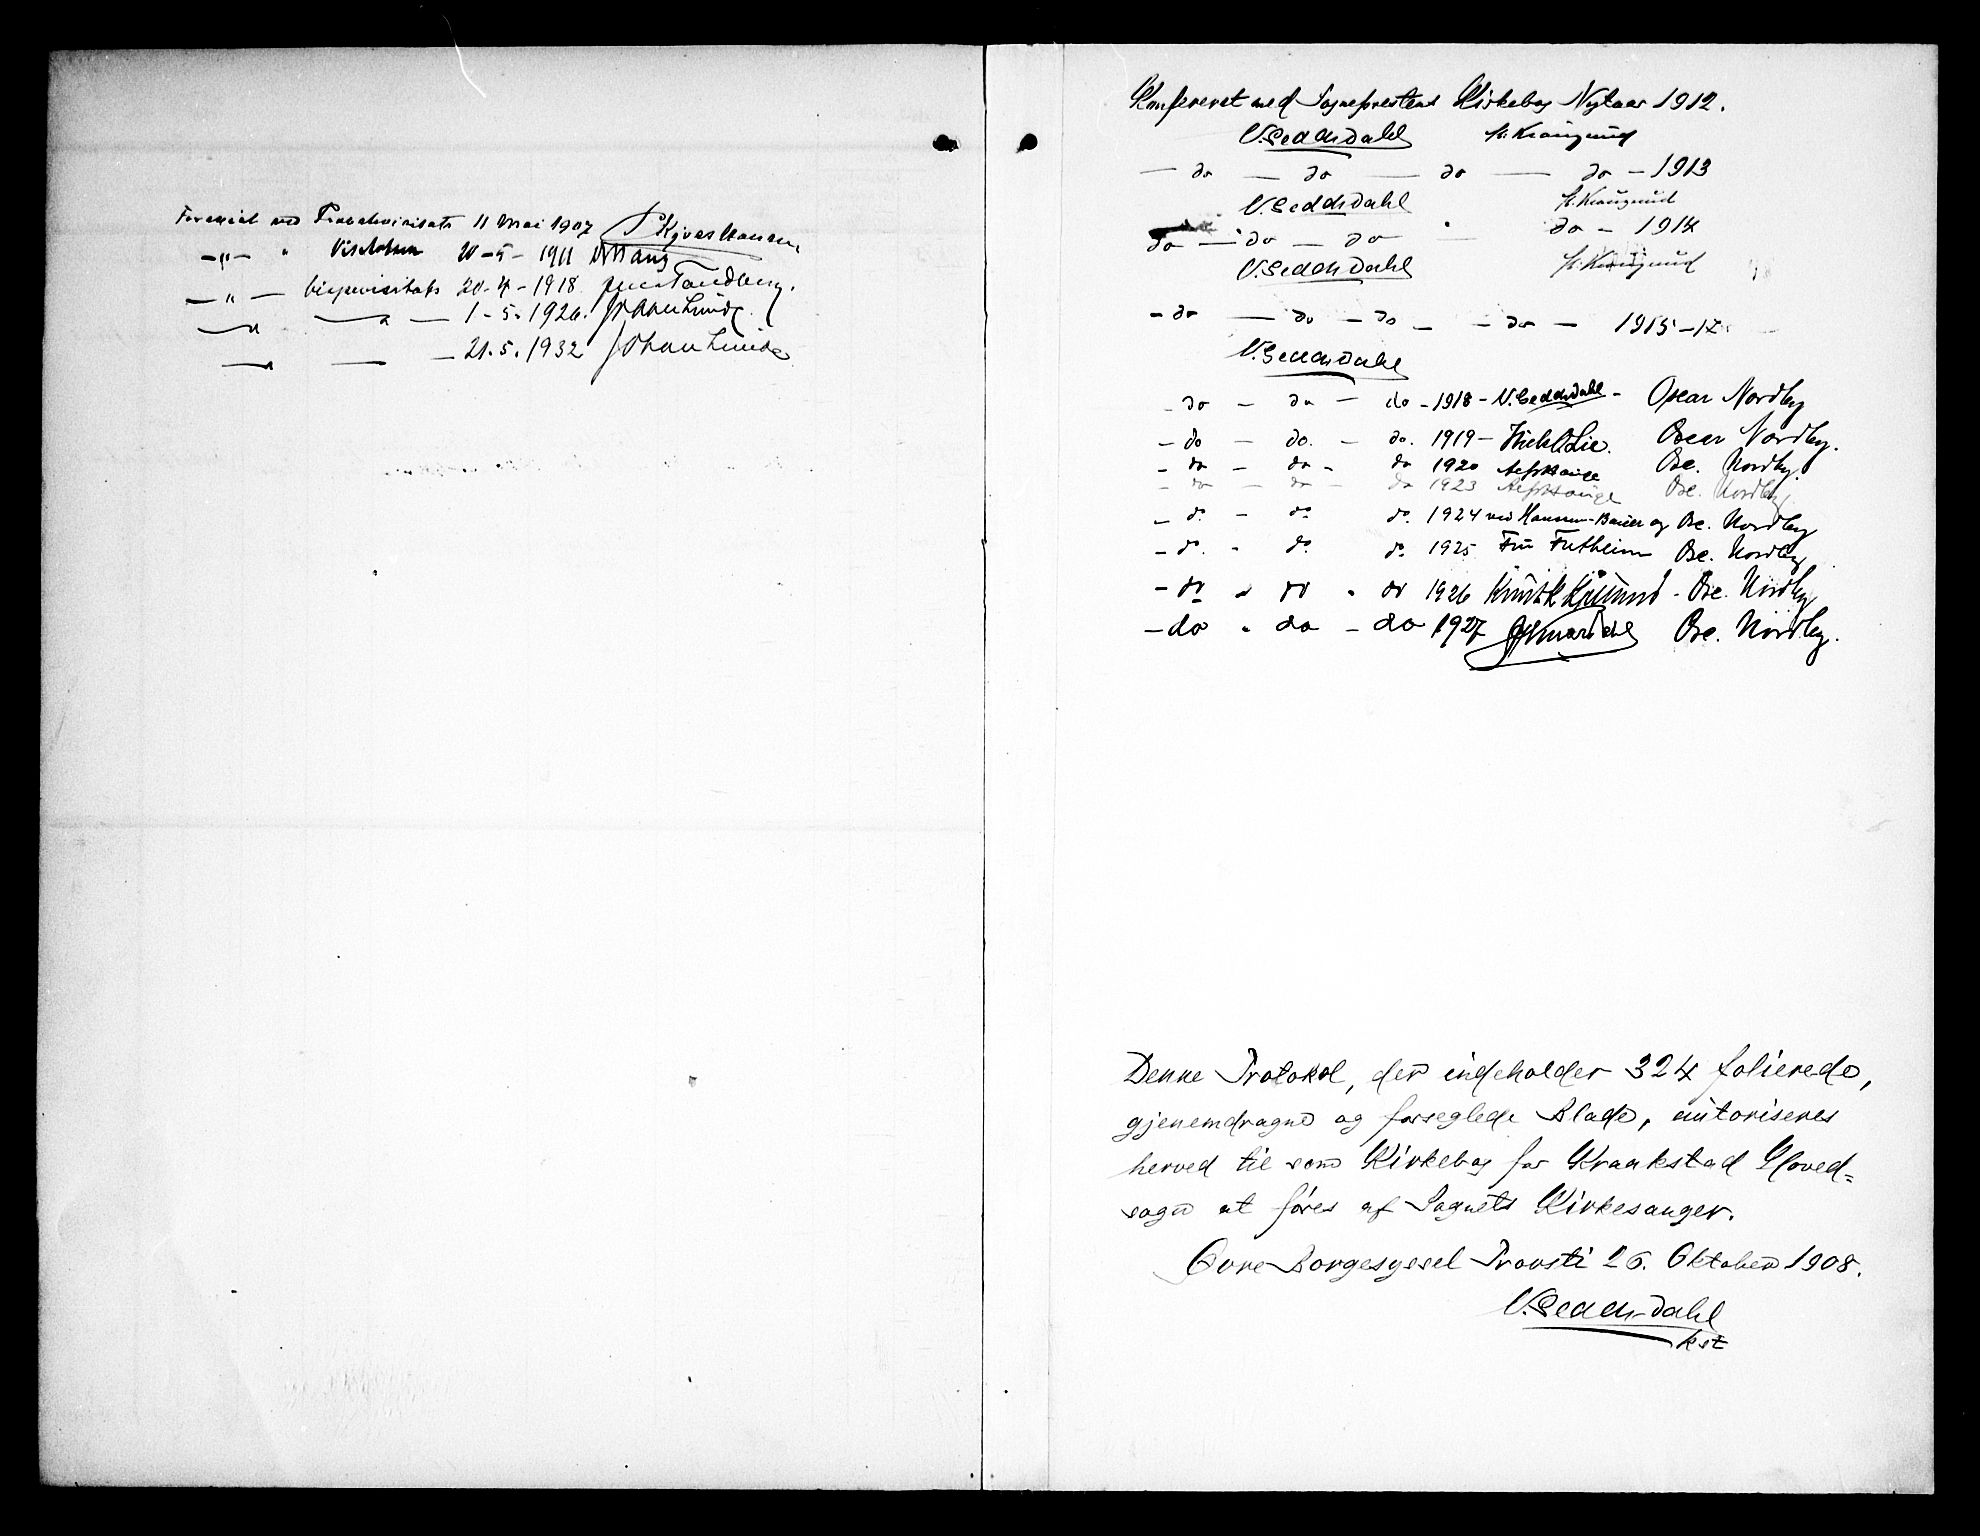 Forevist ved Provstevisitats 11 Mai 1907 Kjær Hansen
— " — " Visitatsen 20 - 5 - 1911
— " — bispevisitats 20 - 4 - 1918 Jens Tandberg.
— " — " — 1 - 5 - 1926. Johan Lunde
— " — — 21. 5. 1932 Johan Lunde
Konfereret med Sogneprestens Kirkebog Nytaar 1912.
V. Sedchsdahl H. Kraugerud
— do — do — do — do — 1913
V. Sedchsdahl H. Kraugerud
do — do — do " — do — 1914
V. Sedchsdahl H. Kraugerud
- do — do — do — - do — 1915 - 17
V. Sedchsdahl
- do — do — do - 1918 - V. Sedchsdahl - Oscar Nordby
- do — do. — do. 1919 - Mich. Lie. Oscar Nordby.
- do — do - do 1920 Hauge Osc. Nordby.
- do — do — do 1923 Hauge Osc. Nordby
- do. - do do. 1924 ved Hansen-Bauer og Osc. Nordby
- do. " do. do. 1925 Fr. Futheim Osc. Nordby
- do " do " do 1926 - Osc. Nordby
- do " do - do 1927 Osc. Nordby.
Denne Protokol, der indeholder 324 folierede,
gjenemdragne og forseglede Blade, autoriseres
herved til som Kirkebog for Kraakstad Hoved-
sogn at føres af Sognets Kirkesanger.
Øvre Borgesyssel Provsti 26. Oktober 1908.
V. Sedchsdahl
kst